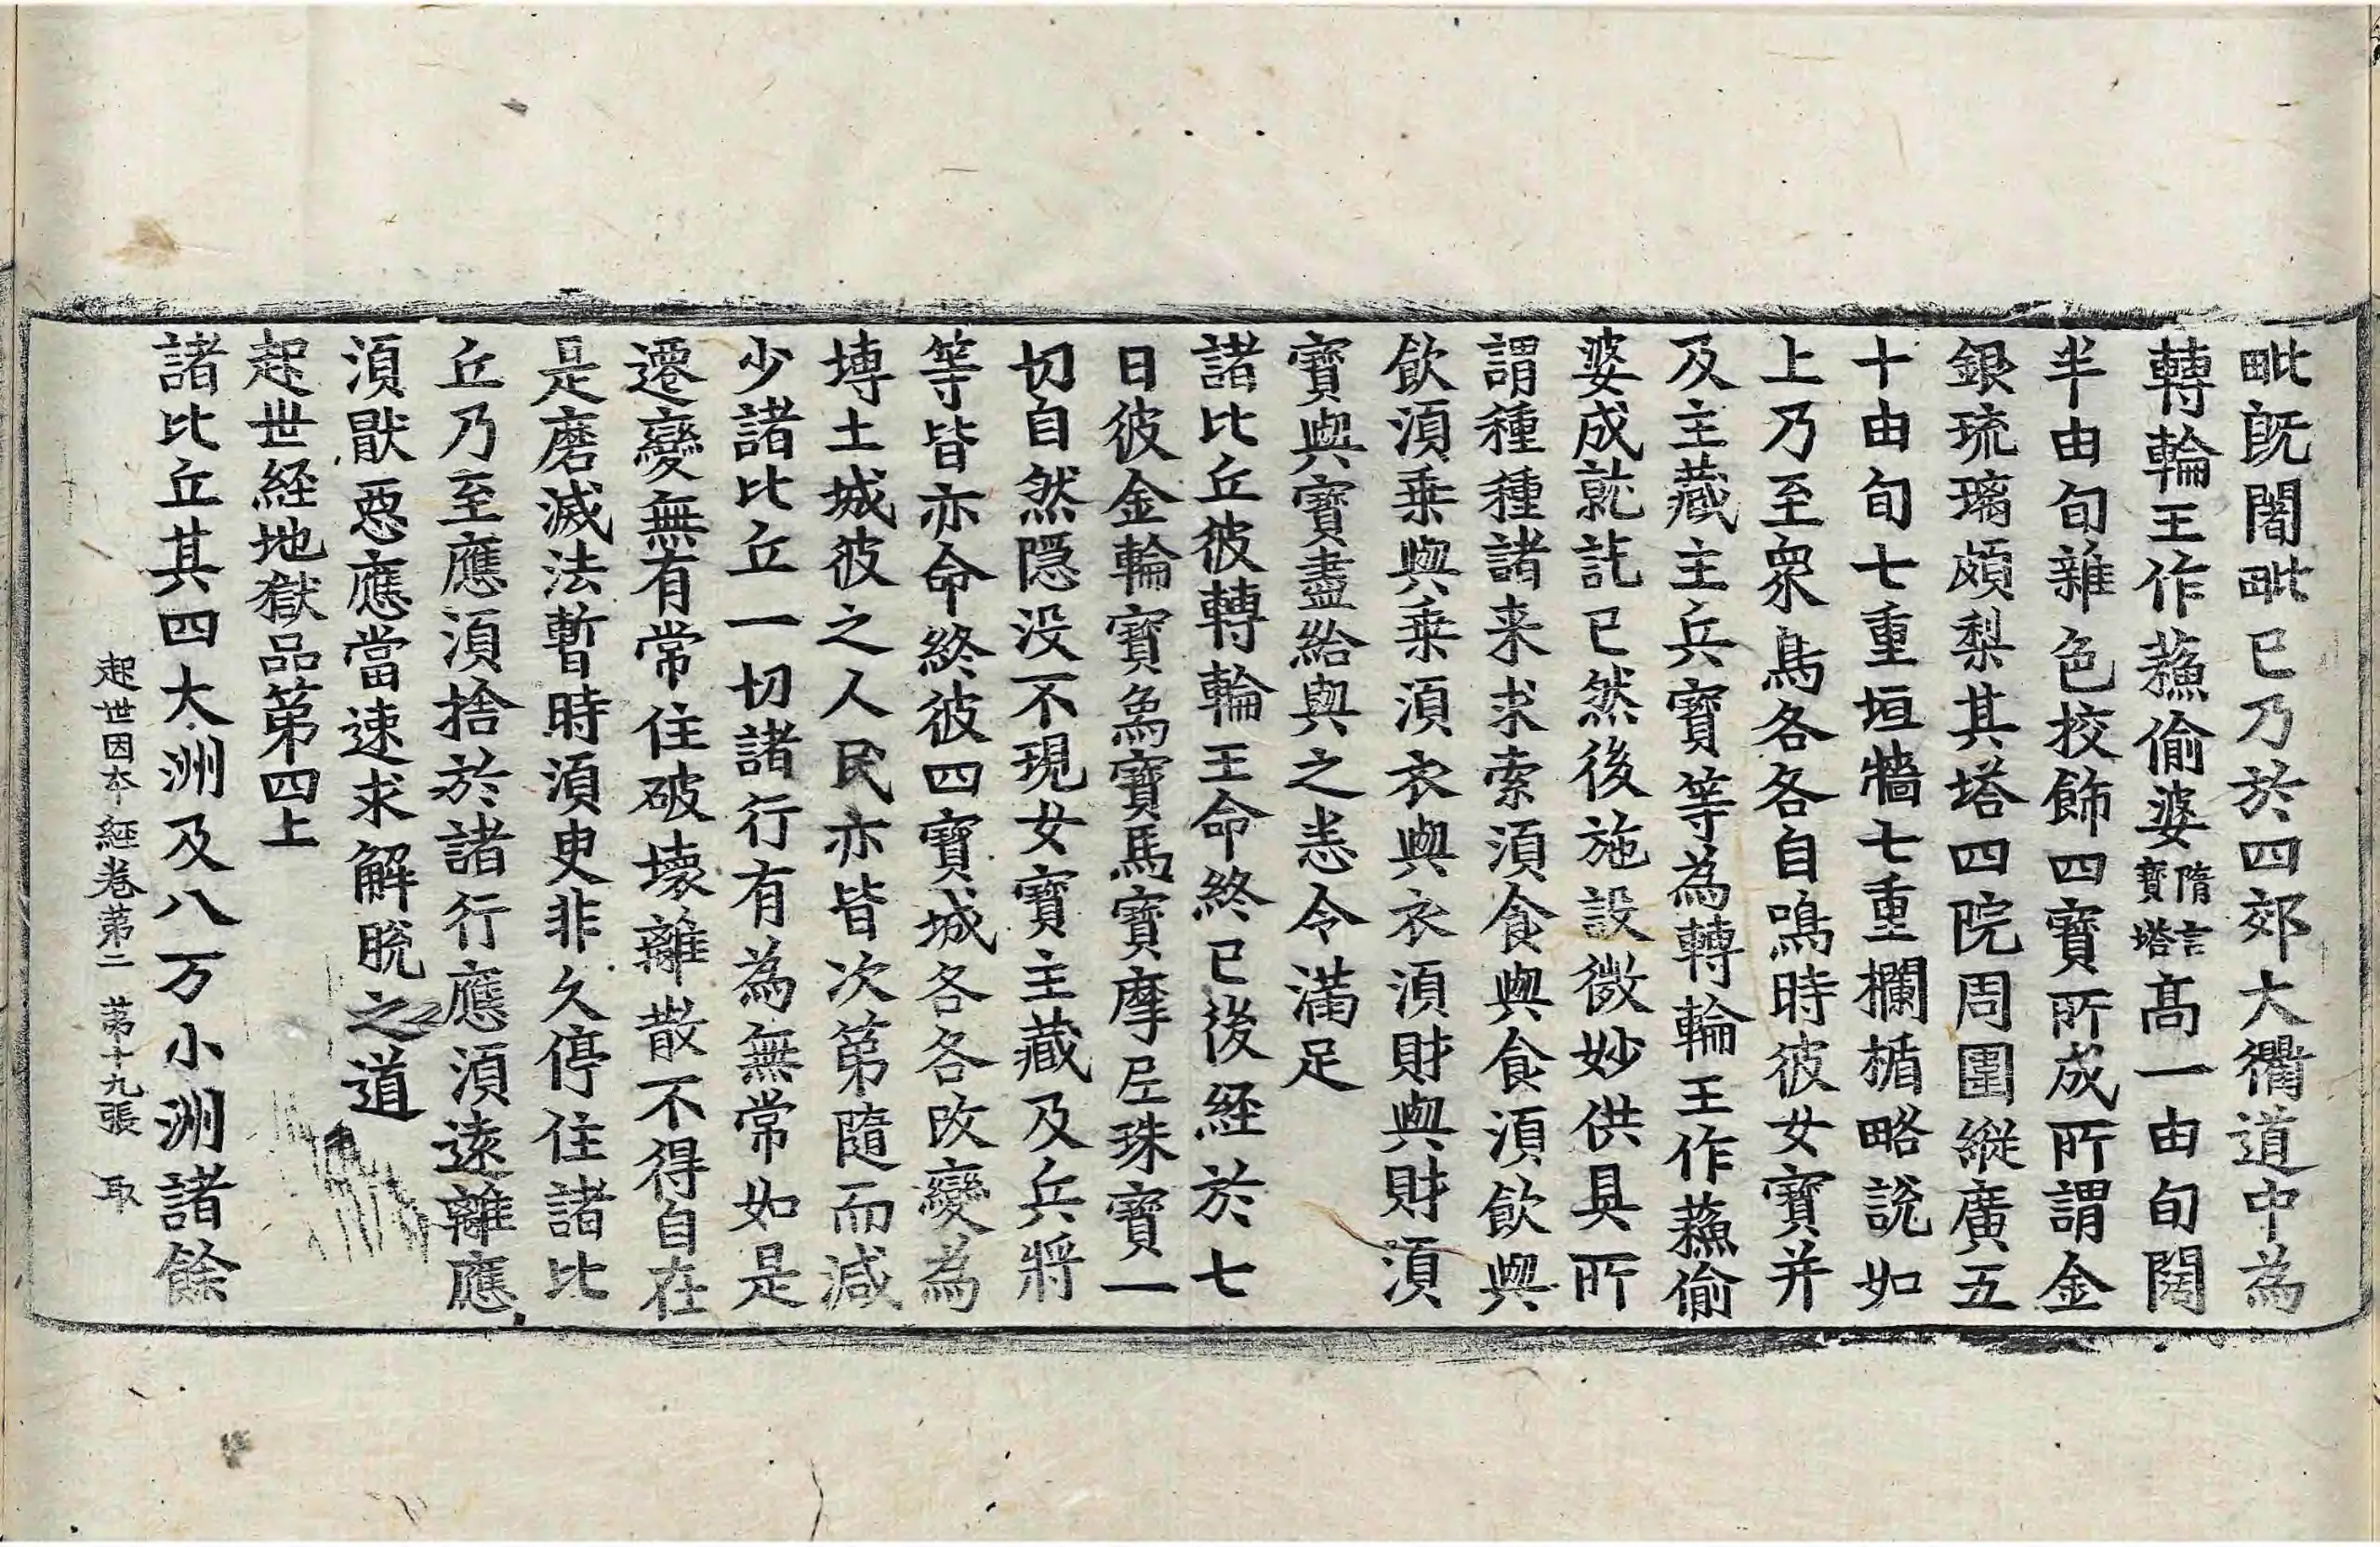 毗旣闍毗已乃於四郊大衢道中為
轉輪王作蘓偷婆隋言寶塔高一由旬闊
半由旬雜色挍飾四寶所成所謂金
銀琉璃頗梨其塔四院周圍縱廣五
十由旬七重垣牆七重欄楯略說如
上乃至衆鳥各各自鳴時彼女寶并
及主藏主兵寶等為轉輪王作蘓偷
婆成就訖已然後施設微妙供具所
謂種種諸来求索須食與食須飲與
飲須乗與乗須衣與衣須財與財須
寶與寶盡給與之恙令滿足
諸比丘彼轉輪王命終已後経於七
日彼金輪寶象寶馬寶摩尼珠寶一
切自然隱没不現女寶主藏及兵將
等皆亦命終彼四寶城各各改變為
塼土城彼之人民亦皆次第隨而減
少諸比丘一切諸行有為無常如是
遷變無有常住破壞離散不得自在
是磨滅法暫時須臾非久停住諸比
丘乃至應須捨於諸行應須遠離應
須猒惡應當速求解脫之道
起世経地獄品第四上
諸比丘其四大洲及八万小洲諸餘
起世因本經卷第二　第十九張　取